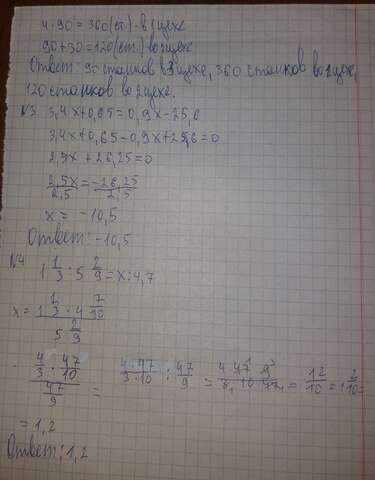 4·90=360(ст.)-в 1 цехе
90+30=120(ст.) во 2 цехе
Ответ: 90 станков в 3 цехе, 360 станков во 1 цехе,
120 станков во 2 цехе.
№3 3,4x+0,65=0,9x-25,6
3,4x+0,65-0,9x+25,6=0
2,5x+26,25=0
2,5x/2,5 = -26,25/2,5
x= -10,5
Ответ: -10,5
№4
1 1/3 : 5 2/9 = x : 4,7
x = (1 1/3 · 4 7/10) / (5 2/9)
(4/3 · 47/10) / (47/9) = 4·47/3·10 : 47/9 = 4 47 9/3 10 47 = 12/10 = 1 2/10 =
= 1,2
Ответ: 1,2